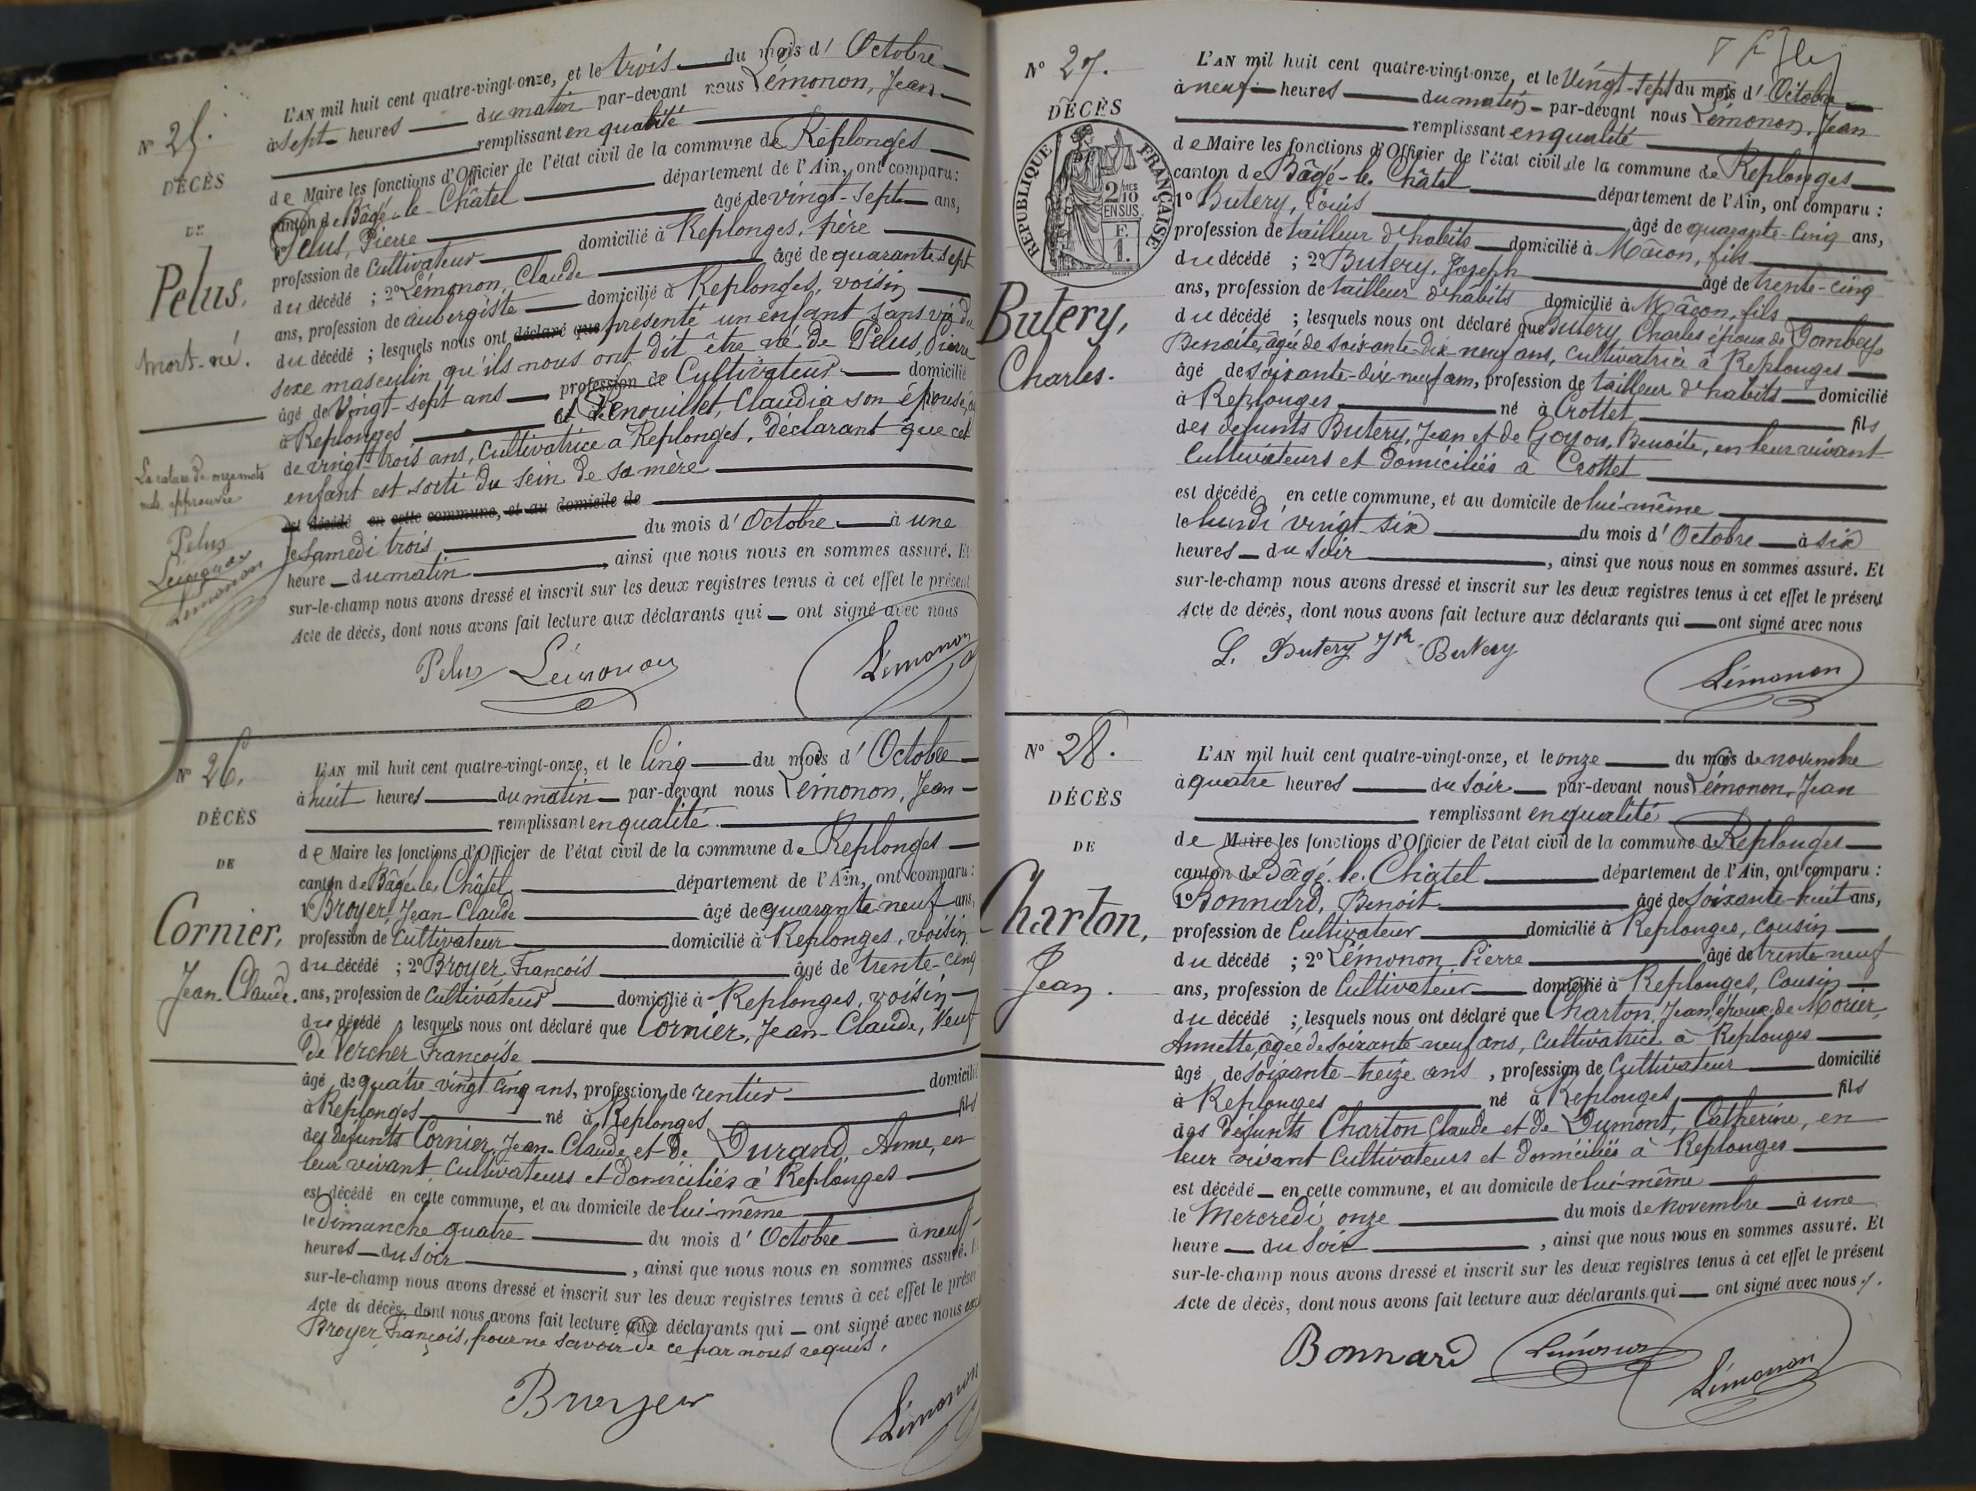 N° 25.
DÉCÈS
DE
Pelus,
mort-né.
La rature de onze mots
nuls approuvée
Pelus
Lémonon
Lémonon
L'AN mil huit cent quatre-vingt-onze, et le trois du mois d'Octobre
à sept heures du matin par-devant nous Lémonon, Jean
remplissant en qualité
de Maire les fonctions d'Officier de l'état civil de la commune de Replonges
canton de Bâgé-le-Châtel département de l'Ain, ont comparu :
1° Pelus, Pierre âgé de vingt-sept ans,
profession de Cultivateur domicilié à Replonges, père
du décédé ; 2° Lémonon, Claude âgé de quarante-sept
ans, profession de aubergiste domicilié à Replonges, voisin
du décédé ; lesquels nous ont déclaré que présenté un enfant sans vie du
sexe masculin qu'ils nous ont dit être né de Pelus, Pierre
âgé de Vingt-sept ans profession de Cultivateur domicilié
à Replonges et de Renouillet, Claudia son épouse, âgée
de vingt-trois ans, Cultivatrice à Replonges, déclarant que cet
enfant est sorti du sein de sa mère
est décédé en cette commune, et au domicile de
le Samedi trois du mois d'Octobre à une
heure du matin, ainsi que nous nous en sommes assuré. Et
sur-le-champ nous avons dressé et inscrit sur les deux registres tenus à cet effet le présent
Acte de décès, dont nous avons fait lecture aux déclarants qui ont signé avec nous
Pelus Lémonon Lémonon
N° 26.
DÉCÈS
DE
Cornier,
Jean-Claude.
L'AN mil huit cent quatre-vingt-onze, et le Cinq du mois d'Octobre
à huit heures du matin par-devant nous Lémonon, Jean
remplissant en qualité
de Maire les fonctions d'Officier de l'état civil de la commune de Replonges
canton de Bâgé-le-Châtel département de l'Ain, ont comparu :
1° Broyer, Jean-Claude âgé de quarante-neuf ans,
profession de Cultivateur domicilié à Replonges, voisin
du décédé ; 2° Broyer, François âgé de trente-cinq
ans, profession de Cultivateur domicilié à Replonges, voisin
du décédé, lesquels nous ont déclaré que Cornier, Jean-Claude, Veuf
de Vercher Françoise
âgé de quatre-vingt-cinq ans, profession de rentier domicilié
à Replonges né à Replonges fils
des défunts Cornier, Jean-Claude et de Durand, Anne, en
leur vivant Cultivateurs et domiciliés à Replonges
est décédé en cette commune, et au domicile de lui-même
le dimanche quatre du mois d'Octobre à neuf
heures du soir, ainsi que nous nous en sommes assuré.
sur-le-champ nous avons dressé et inscrit sur les deux registres tenus à cet effet le présent
Acte de décès, dont nous avons fait lecture aux déclarants qui ont signé avec nous
Broyer François, pour ne savoir de ce par nous requis.
Broyer Lémonon
N° 27.
DÉCÈS
RÉPUBLIQUE FRANÇAISE
2/10 MES
EN SUS
F.
1.
Butery,
Charles.
L'AN mil huit cent quatre-vingt-onze, et le Vingt-sept du mois d'Octobre
à neuf heures du matin par-devant nous Lémonon, Jean
remplissant en qualité
de Maire les fonctions d'Officier de l'état civil de la commune de Replonges
canton de Bâgé-le-Châtel département de l'Ain, ont comparu :
1° Butery, Louis âgé de quarante-cinq ans,
profession de tailleur d'habits domicilié à Mâcon, fils
du décédé ; 2° Butery, Joseph âgé de trente-cinq
ans, profession de tailleur d'habits domicilié à Mâcon, fils
du décédé ; lesquels nous ont déclaré que Butery, Charles époux de Gombey
Benoite, âgée de soixante-dix-neuf ans, Cultivatrice à Replonges
âgé de soixante-dix-neuf ans, profession de tailleur d'habits domicilié
à Replonges né à Crottet fils
des défunts Butery, Jean et de Goyon, Benoite, en leur vivant
Cultivateurs et domiciliés à Crottet
est décédé en cette commune, et au domicile de lui-même
le lundi vingt-six du mois d'Octobre à six
heures du soir, ainsi que nous nous en sommes assuré. Et
sur-le-champ nous avons dressé et inscrit sur les deux registres tenus à cet effet le présent
Acte de décès, dont nous avons fait lecture aux déclarants qui ont signé avec nous
L. Butery Jh Butery
Lémonon
N° 28.
DÉCÈS
DE
Charton,
Jean.
L'AN mil huit cent quatre-vingt-onze, et le onze du mois de novembre
à quatre heures du soir par-devant nous Lémonon, Jean
remplissant en qualité
de Maire les fonctions d'Officier de l'état civil de la commune de Replonges
canton de Bâgé-le-Châtel département de l'Ain, ont comparu :
1° Bonnard, Benoit âgé de soixante-huit ans,
profession de Cultivateur domicilié à Replonges, cousin
du décédé ; 2° Lémonon Pierre âgé de trente-neuf
ans, profession de Cultivateur domicilié à Replonges, Cousin
du décédé ; lesquels nous ont déclaré que Charton, Jean, époux de Morier
Annette, âgée de soixante-neuf ans, Cultivatrice à Replonges
âgé de soixante-treize ans, profession de Cultivateur domicilié
à Replonges né à Replonges fils
des défunts Charton Claude et de Dumont, Catherine, en
leur vivant Cultivateurs et domiciliés à Replonges
est décédé en cette commune, et au domicile de lui-même
le Mercredi onze du mois de novembre à une
heure du soir, ainsi que nous nous en sommes assuré. Et
sur-le-champ nous avons dressé et inscrit sur les deux registres tenus à cet effet le présent
Acte de décès, dont nous avons fait lecture aux déclarants qui ont signé avec nous.
Bonnard Lémonon Lémonon